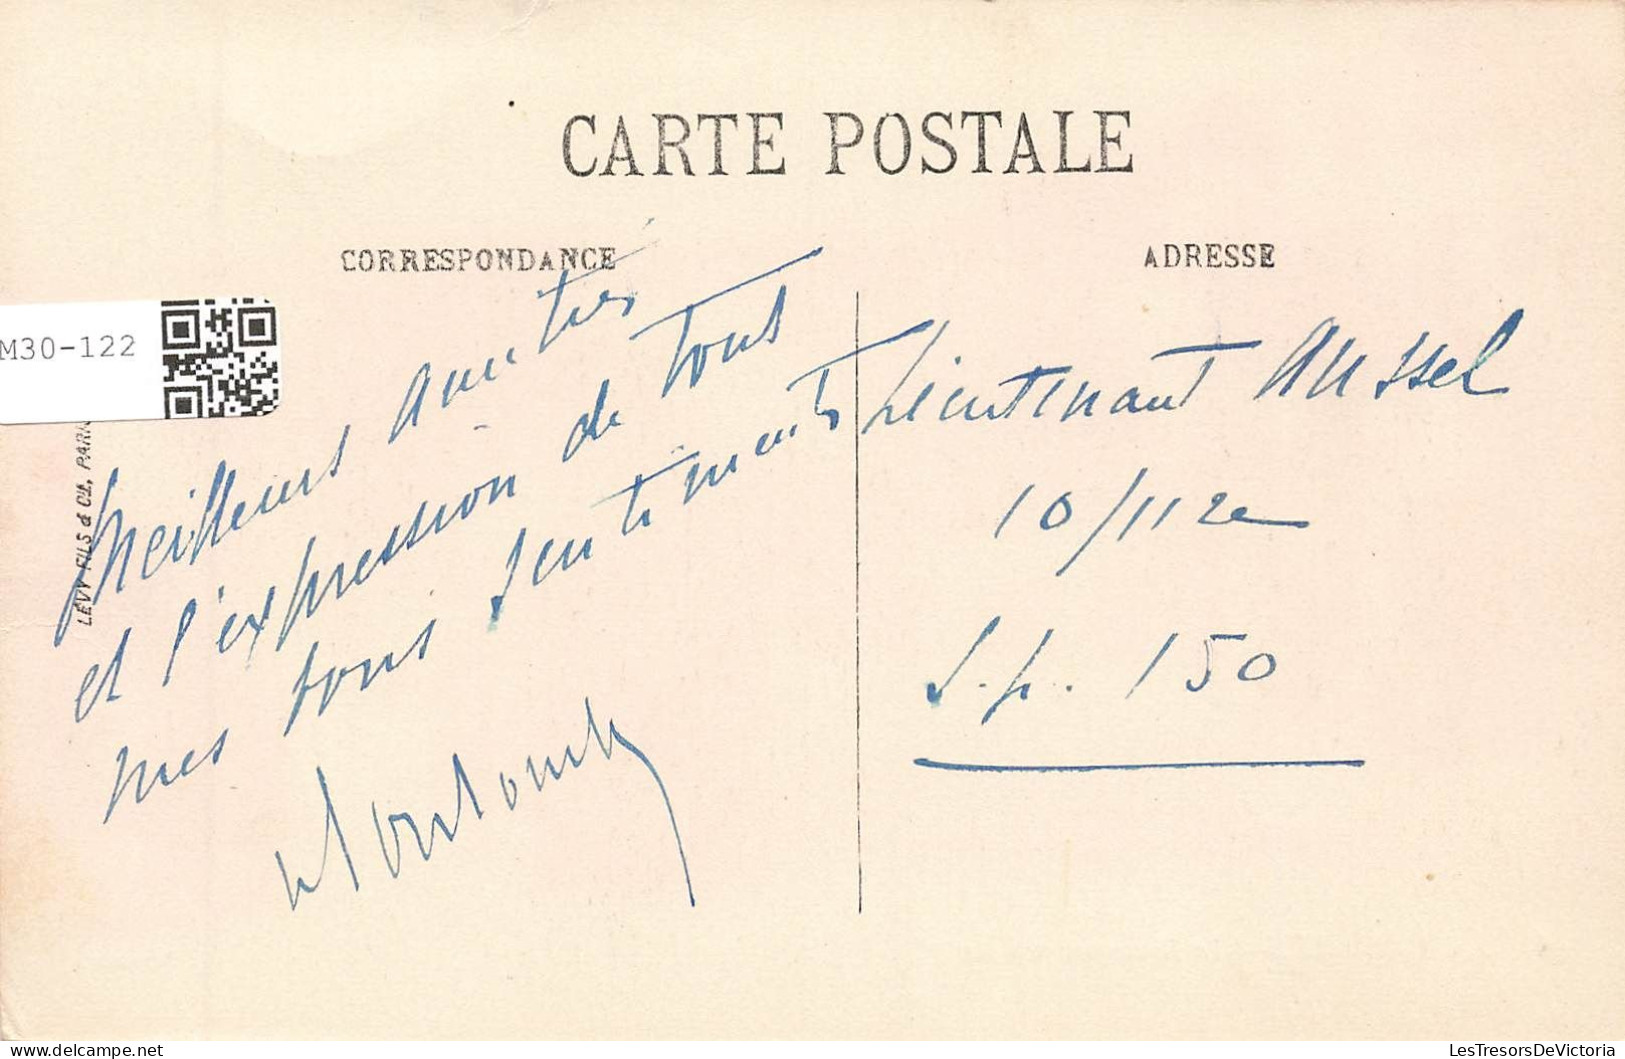 CARTE POSTALE
CORRESPONDANCE
ADRESSE
M30-122
LÉVY FILS & Cie, PARIS
Meilleurs amitiés
et l'expression de tout
mes bons sentiments
Lieutenant Aussel
10/112e
S.p. 150
LesTresorsDeVictoria